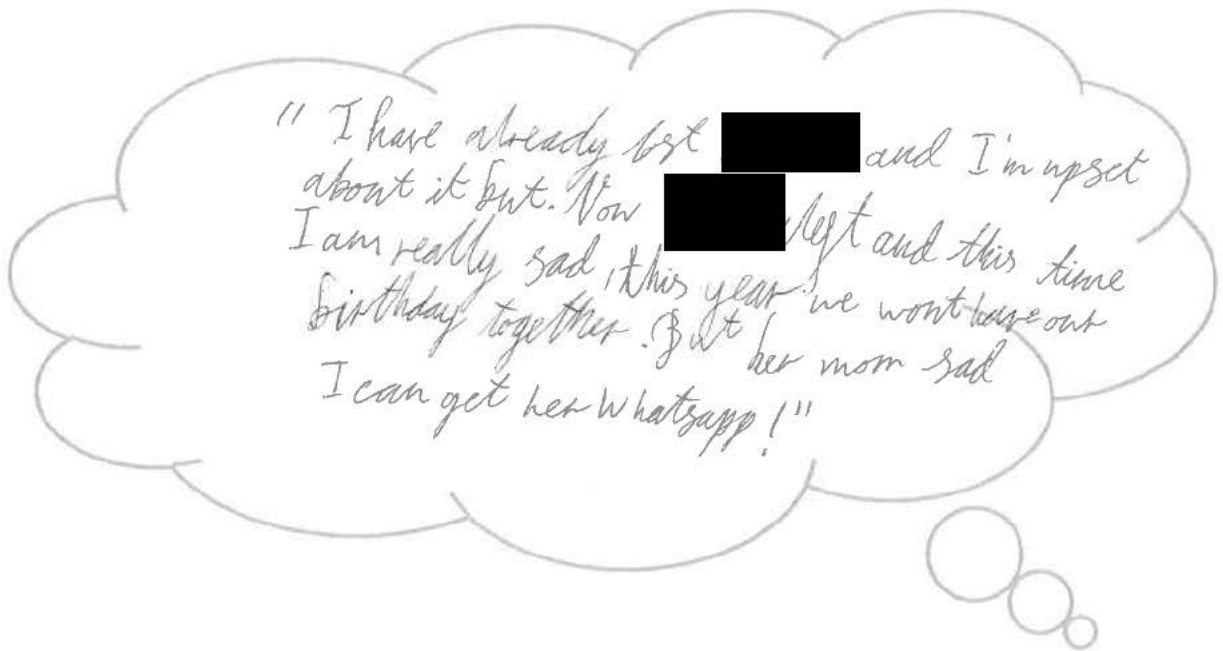 " I have already lost and I'm upset
about it but. Now left and this time
I am really sad, this year we wont have our
birthday together. But her mom sad
I can get her Whatsapp!"